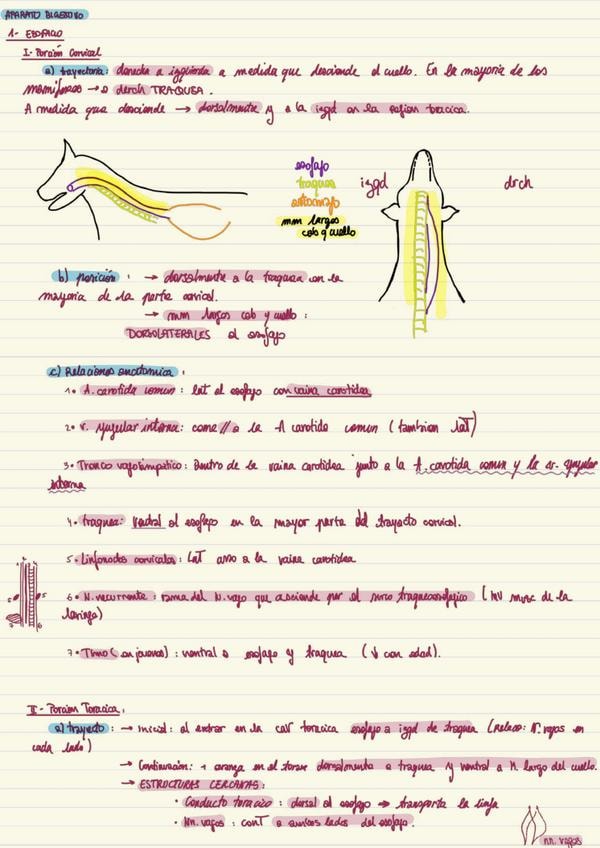 APARATO DIGESTIVO
1- ESOFAGO
I- Porción Cervical
a) trayectoria: derecha a izqierda a medida que desciende el cuello. En la mayoria de los
mamíferos → derch TRAQUEA.
A medida que desciende → dorsalmente y a la izqd en la region toracica.
esofajo
traquea
estomajo
mm largos
cab y cuello
izqd
drch
b) posición: → dorsalmente a la traquea en la
mayoria de la parte cervical.
→ mm largos cab y cuello:
DORSOLATERALES al esofajo
c) Relaciones anatomica:
1• A. carotida comun: lat al esofajo con vaina carotidea
2• v. yugular interna: come // a la A carotida comun (tambien lat)
3• Tronco vagosimpatico: Dentro de la vaina carotidea junto a la A. carotida comun y la v. yugular
interna
4• traquea: ventral al esofajo en la mayor parte del trayecto cervical.
5• Linfonodos cervicales: Lat a la vaina carotidea
6• N. recurrente: rama del N. vajo que asciende por el surco traqueoesofajico (inv musc de la
laringe)
7• Timo (en jovenes): ventral a esofajo y traquea (↓ con edad).
II- Porcion Toracica:
a) trayecto: → inicial: al entrar en la cav toracica esofajo a izqd de traquea (relacc: N. vajos en
cada lado)
→ Continuación: avanza en el torax dorsalmente a traquea y ventral a M. largo del cuello.
→ ESTRUCTURAS CERCANAS:
• Conducto toracico: dorsal al esofajo → transporta la linfa
• Nn. vagos: cont a ambos lados del esofajo.
nn. vagos